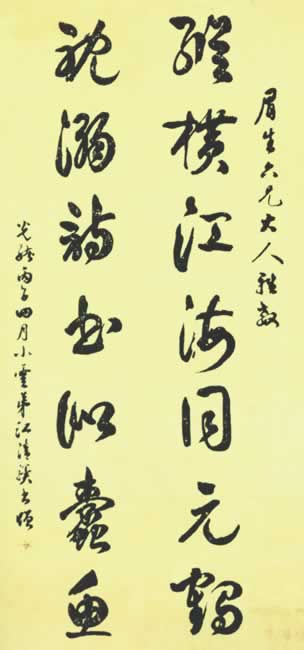 眉生六兄大人雅教
縱橫江海同元鶴
耽溺詩書似蠹魚
光緒丙子四月小雲弟江清驥書